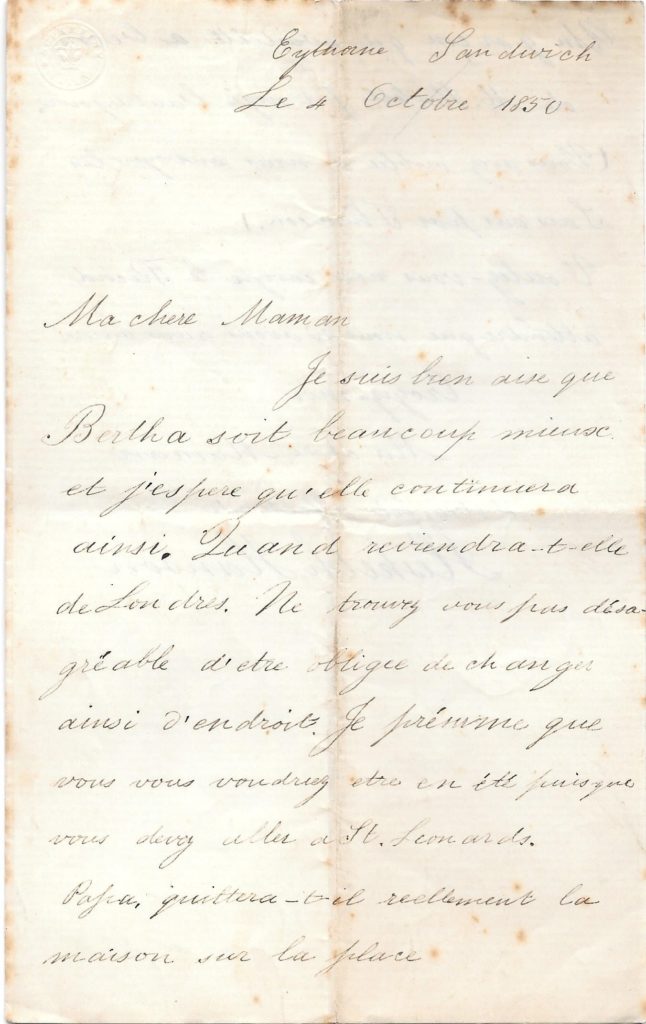 Eythorne Sandwich
Le 4 Octobre 1850
Ma chere Maman
Je suis bien aise que
Bertha soit beaucoup mieux
et j'espere qu'elle continuera
ainsi. Quand reviendra-t-elle
de Londres. Ne trouvez vous pas désa-
grëable d'etre obligee de changer
ainsi d'endroit. Je présume que
vous vous voudriez etre en été puisque
vous devez aller a St. Leonards.
Papa, quittera-t-il reellement la
maison sur la place